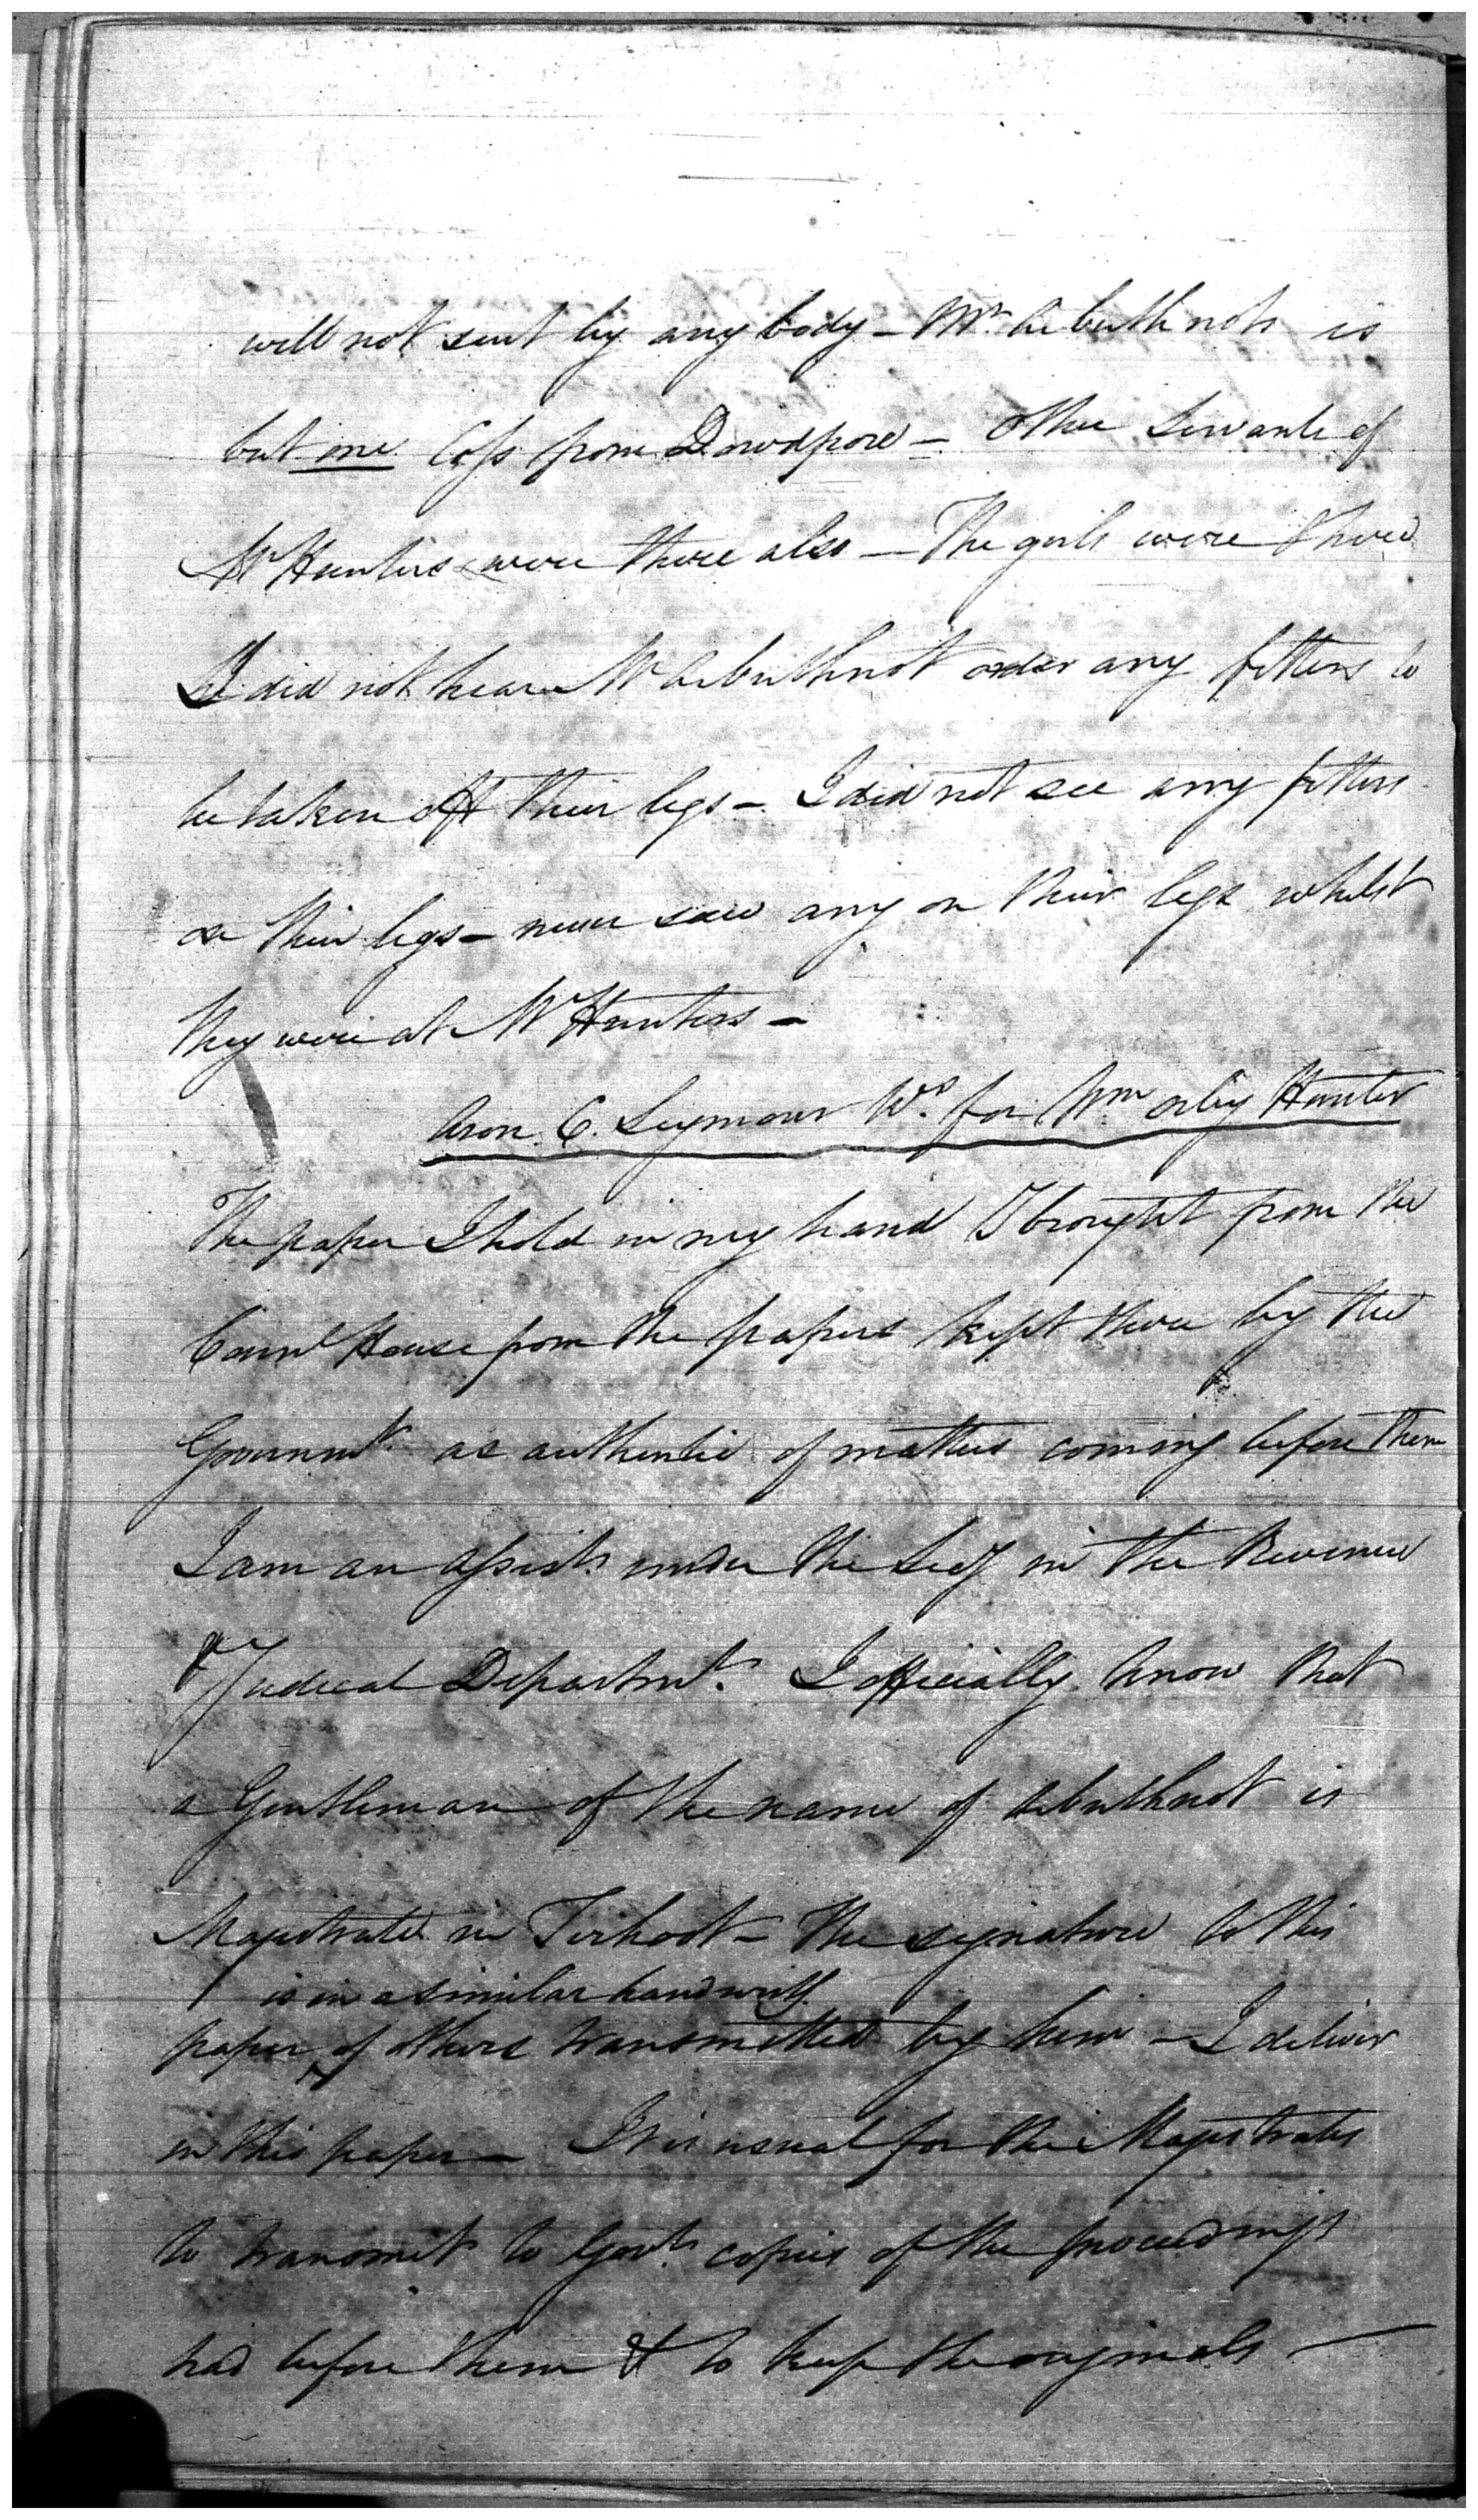 will not sent by any body - Mr. Arbuthnots is
but one Coss from Dowdpore - Other Servants of
Mr Hunters were there also - The girls were there
I did not hear Mr Arbuthnot order any fetters to
be taken off their legs - I did not see any fetters
on their legs - never saw any on their legs whilst
they were at Mr Hunters -
C. Seymour Ws. for Wm orby Hunter
The paper I hold in my hand I brought from the
Counl House from the papers kept there by the
Governmt. as authentic of matters coming before them
I am an assist. under the Secy in the Revenue
& Judical Departmt. I officially know that
a Gentleman of the name of Arbuthnot is
Magistrate in Tirhoot - The signature to this
is in a similar handwritg.
paper of others transmitted by him - I deliver
in this paper - It is usual for the Magistrates
to transmit to Govt. copies of the proceedings
had before them & to keep the originals -